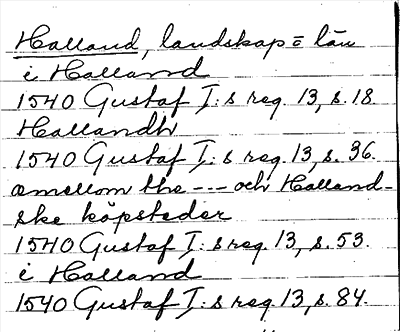 Halland, landskap = län
i Halland
1540 Gustaf I:s reg. 13, s. 18.
Hallandh
1540 Gustaf I:s reg. 13, s. 36.
œmellom the --- och Halland-
ske köpsteder
1540 Gustaf I:s reg. 13, s. 53.
i Halland
1540 Gustaf I:s reg. 13, s. 84.